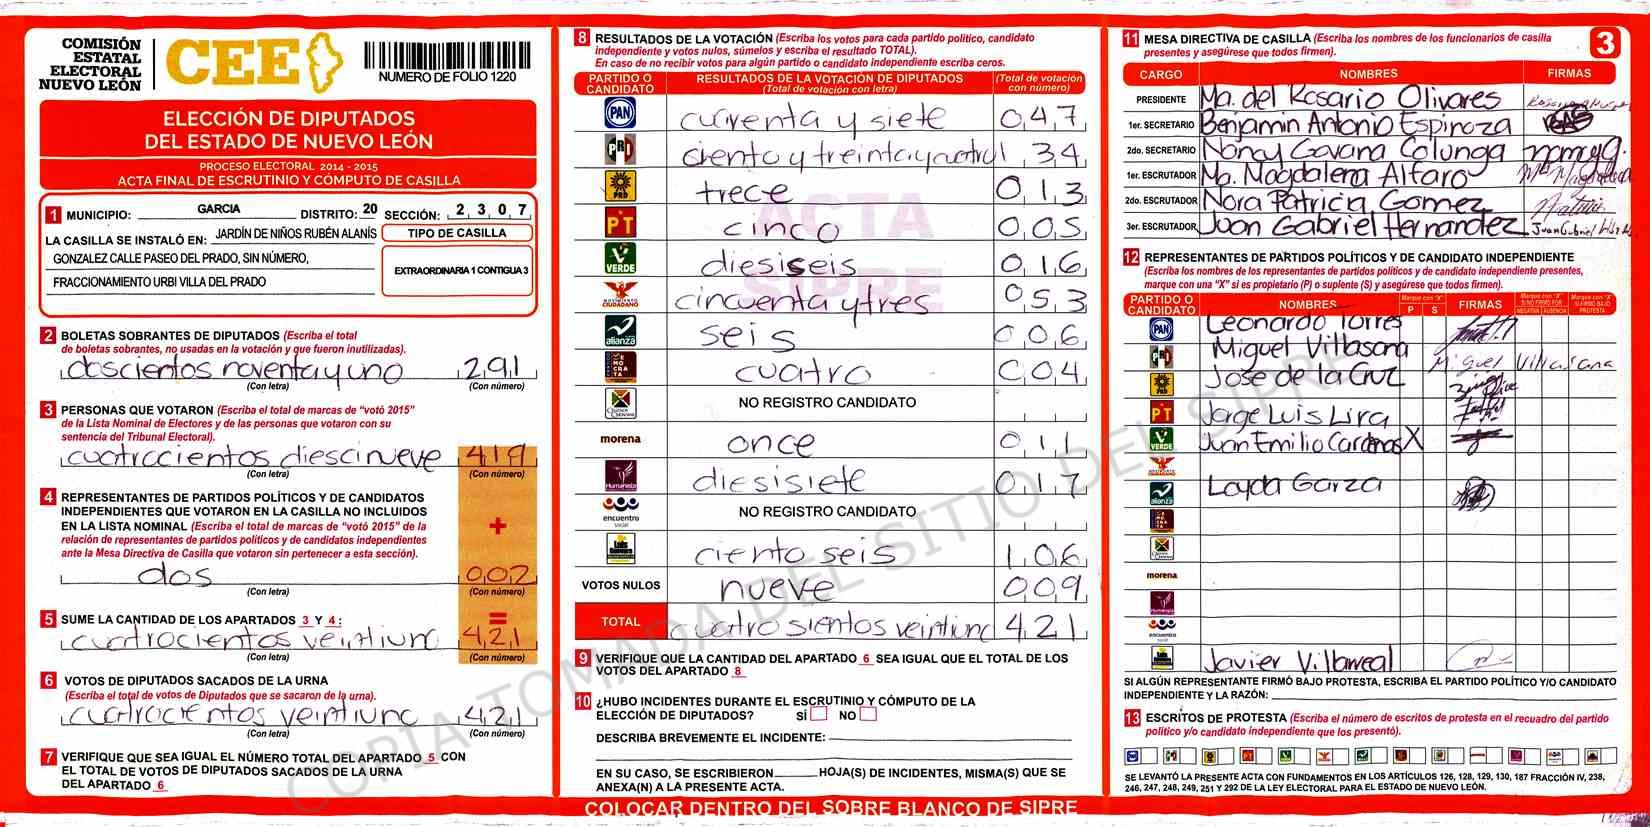 COMISIÓN
ESTATAL
ELECTORAL
NUEVO LEÓN
CEE
NUMERO DE FOLIO 1220
ELECCIÓN DE DIPUTADOS
DEL ESTADO DE NUEVO LEÓN
PROCESO ELECTORAL 2014 - 2015
ACTA FINAL DE ESCRUTINIO Y CÓMPUTO DE CASILLA
1 MUNICIPIO: GARCIA DISTRITO: 20 SECCIÓN: 2 3 0 7
LA CASILLA SE INSTALÓ EN: JARDÍN DE NIÑOS RUBÉN ALANÍS
GONZALEZ CALLE PASEO DEL PRADO, SIN NÚMERO,
FRACCIONAMIENTO URBI VILLA DEL PRADO
TIPO DE CASILLA
EXTRAORDINARIA 1 CONTIGUA 3
2 BOLETAS SOBRANTES DE DIPUTADOS (Escriba el total
de boletas sobrantes, no usadas en la votación y que fueron inutilizadas).
doscientos noventa y uno 291
(Con letra) (Con número)
3 PERSONAS QUE VOTARON (Escriba el total de marcas de "votó 2015"
de la Lista Nominal de Electores y de las personas que votaron con su
sentencia del Tribunal Electoral).
cuatrocientos diescinueve 419
(Con letra) (Con número)
4 REPRESENTANTES DE PARTIDOS POLÍTICOS Y DE CANDIDATOS
INDEPENDIENTES QUE VOTARON EN LA CASILLA NO INCLUIDOS
EN LA LISTA NOMINAL (Escriba el total de marcas de "votó 2015" de la
relación de representantes de partidos políticos y de candidatos independientes
ante la Mesa Directiva de Casilla que votaron sin pertenecer a esta sección).
+
dos 002
(Con letra) (Con número)
5 SUME LA CANTIDAD DE LOS APARTADOS 3 Y 4 :
=
cuatrocientos veintiuno 421
(Con letra) (Con número)
6 VOTOS DE DIPUTADOS SACADOS DE LA URNA
(Escriba el total de votos de Diputados que se sacaron de la urna).
cuatrocientos veintiuno 421
(Con letra) (Con número)
7 VERIFIQUE QUE SEA IGUAL EL NÚMERO TOTAL DEL APARTADO 5 CON
EL TOTAL DE VOTOS DE DIPUTADOS SACADOS DE LA URNA
DEL APARTADO 6
8 RESULTADOS DE LA VOTACIÓN (Escriba los votos para cada partido político, candidato
independiente y votos nulos, súmelos y escriba el resultado TOTAL).
En caso de no recibir votos para algún partido o candidato independiente escriba ceros.
PARTIDO O CANDIDATO RESULTADOS DE LA VOTACIÓN DE DIPUTADOS (Total de votación con letra) (Total de votación con número)
PAN cuarenta y siete 047
PRI ciento y treinta y cuatro 134
PRD trece 013
PT cinco 005
VERDE diesiseis 016
MOVIMIENTO CIUDADANO cincuenta y tres 053
alianza seis 006
DEMOCRATA cuatro 004
NO REGISTRO CANDIDATO
morena once 011
Humanista diesisiete 017
encuentro social NO REGISTRO CANDIDATO
ciento seis 106
VOTOS NULOS nueve 009
TOTAL cuatro sientos veintiuno 421
ACTA
SIPRE
9 VERIFIQUE QUE LA CANTIDAD DEL APARTADO 6 SEA IGUAL QUE EL TOTAL DE LOS
VOTOS DEL APARTADO 8
10 ¿HUBO INCIDENTES DURANTE EL ESCRUTINIO Y CÓMPUTO DE LA
ELECCIÓN DE DIPUTADOS? SÍ NO
DESCRIBA BREVEMENTE EL INCIDENTE:
EN SU CASO, SE ESCRIBIERON HOJA(S) DE INCIDENTES, MISMA(S) QUE SE
ANEXA(N) A LA PRESENTE ACTA.
COLOCAR DENTRO DEL SOBRE BLANCO DE SIPRE
11 MESA DIRECTIVA DE CASILLA (Escriba los nombres de los funcionarios de casilla
presentes y asegúrese que todos firmen).
3
CARGO NOMBRES FIRMAS
PRESIDENTE Ma. del Rosario Olivares
1er. SECRETARIO Benjamin Antonio Espinoza
2do. SECRETARIO Nancy Govana Colunga
1er. ESCRUTADOR Ma. Magdalena Alfaro
2do. ESCRUTADOR Nora Patricia Gomez
3er. ESCRUTADOR Juan Gabriel Hernandez
12 REPRESENTANTES DE PARTIDOS POLÍTICOS Y DE CANDIDATO INDEPENDIENTE
(Escriba los nombres de los representantes de partidos políticos y de candidato independiente presentes,
marque con una "X" si es propietario (P) o suplente (S) y asegúrese que todos firmen).
PARTIDO O CANDIDATO NOMBRES Marque con "X" P S FIRMAS Marque con "X" SI NO FIRMÓ POR NEGATIVA AUSENCIA Marque con "X" SI FIRMÓ BAJO PROTESTA
PAN Leonardo Torres
PRI Miguel Villasana Miguel Villasana
PRD Jose de la Cruz
PT Jorge Luis Lira
VERDE Juan Emilio Cardenas X
alianza Layda Garza
morena
encuentro social
Javier Villarreal
SI ALGÚN REPRESENTANTE FIRMÓ BAJO PROTESTA, ESCRIBA EL PARTIDO POLÍTICO Y/O CANDIDATO
INDEPENDIENTE Y LA RAZÓN:
13 ESCRITOS DE PROTESTA (Escriba el número de escritos de protesta en el recuadro del partido
político y/o candidato independiente que los presentó).
SE LEVANTÓ LA PRESENTE ACTA CON FUNDAMENTOS EN LOS ARTÍCULOS 126, 128, 129, 130, 187 FRACCIÓN IV, 238,
246, 247, 248, 249, 251 Y 292 DE LA LEY ELECTORAL PARA EL ESTADO DE NUEVO LEÓN.
COPIA TOMADA DEL SITIO DEL SIPRE